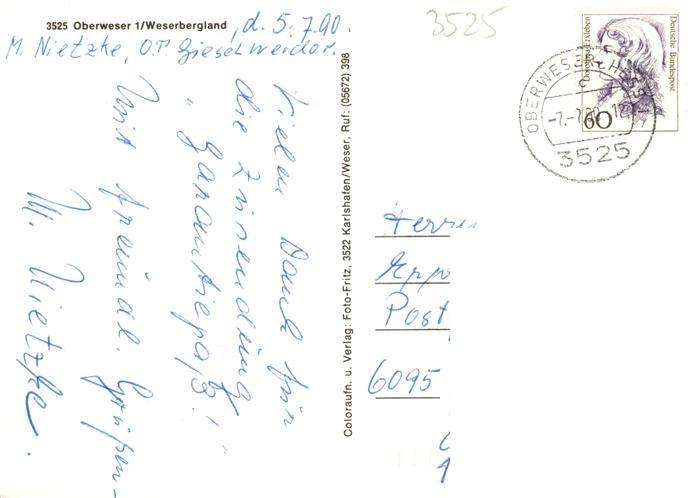 3525 Oberweser 1/Weserbergland, d. 5.7.90.
M. Nietzke, O.T. Gieselwerder.
Vielen Dank für
die Zusendung
"Garantiepaß".
Mit freundl. Grüßen-
M. Nietzke.
Coloraufn. u. Verlag: Foto-Fritz, 3522 Karlshafen/Weser, Ruf: (05672) 398
3525
Deutsche Bundespost
60
OBERWESER
3525
Herrn
Post
6095